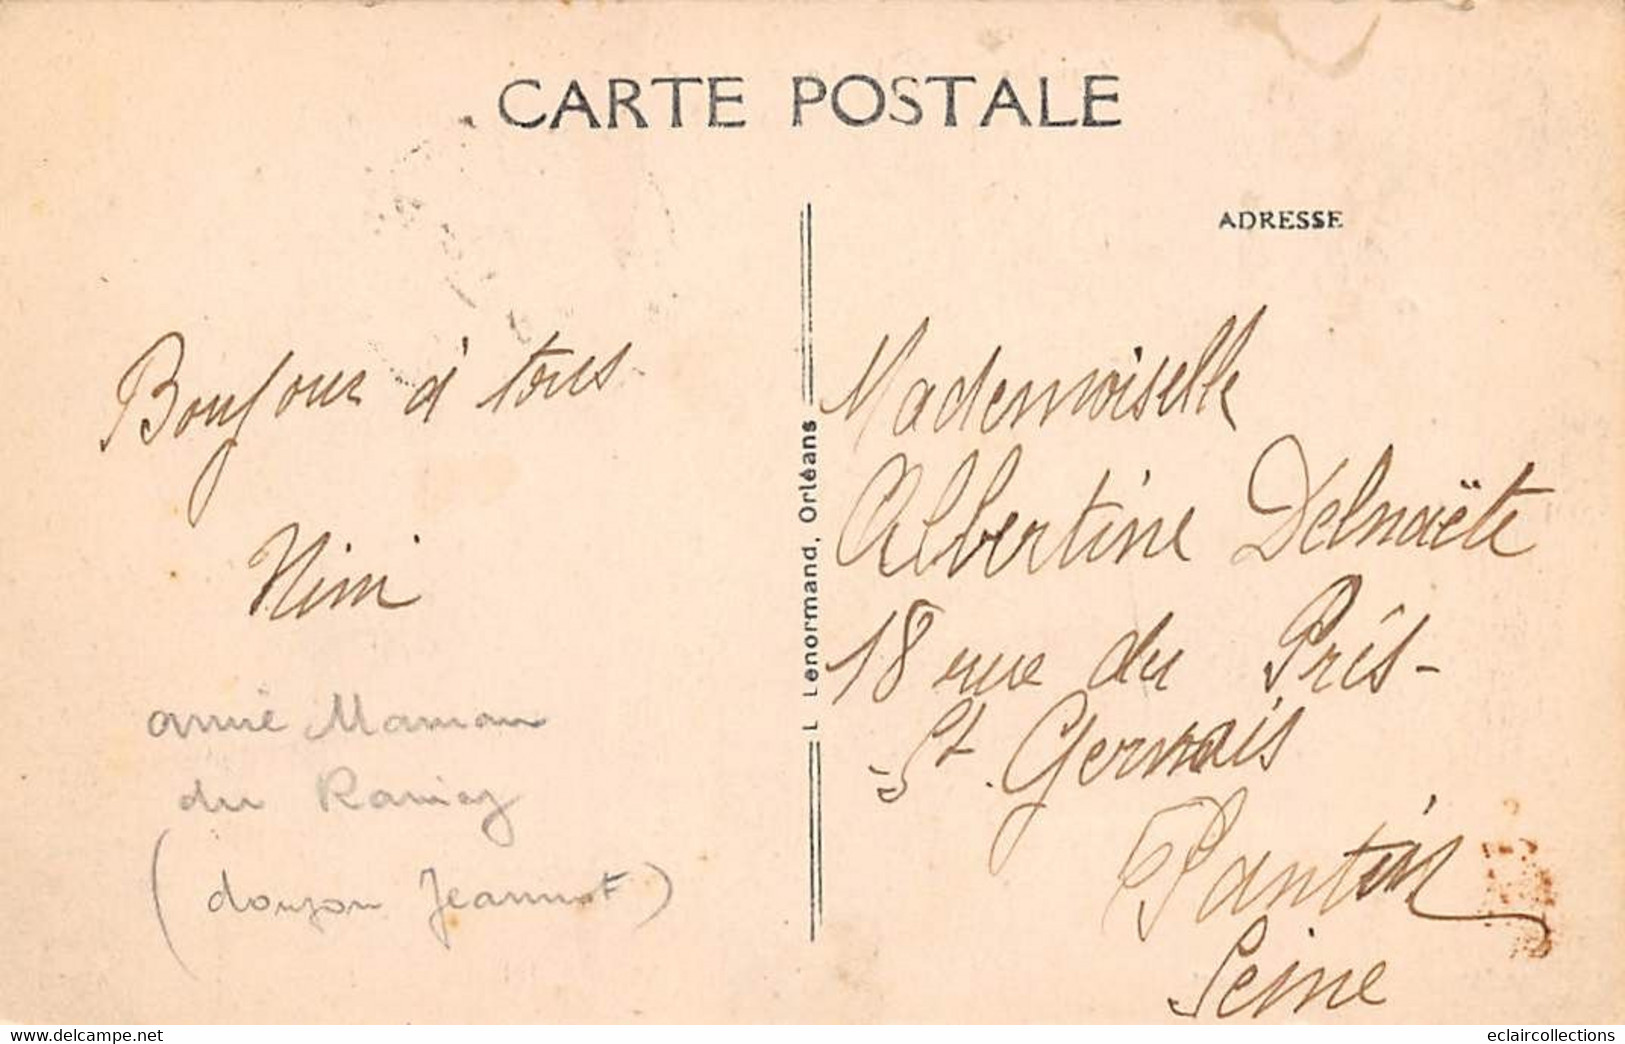 CARTE POSTALE
ADRESSE
Bonjour à tous
Nini
Maman
du
(donjon Jeannot)
L Lenormand, Orléans
Mademoiselle
Albertine Delnaëte
18 rue du Prés-
St Gervais
Pantin
Seine
www.delcampe.net
eclaircollections